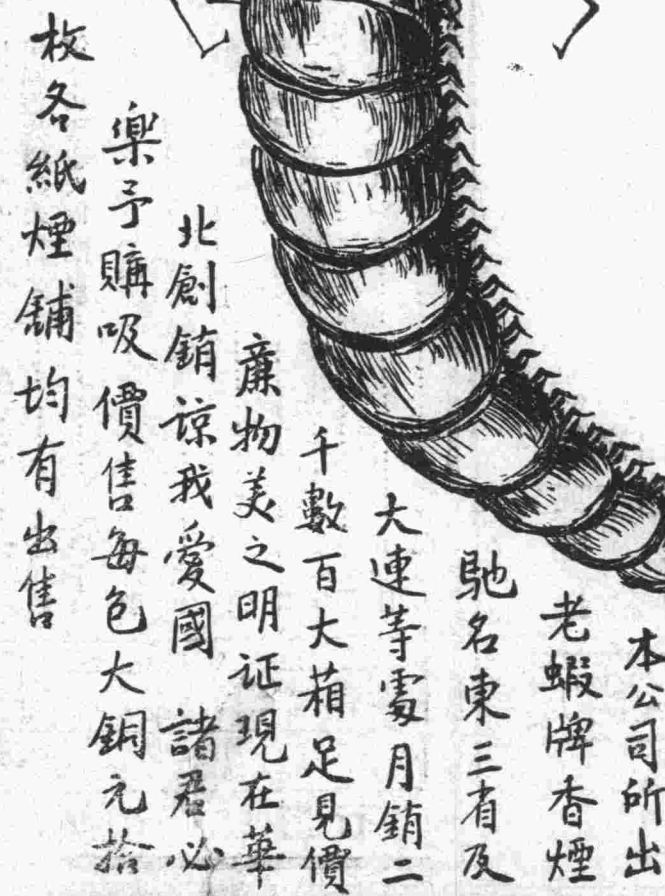 本公司所出
老蝦牌香煙
馳名東三省及
大連等處月銷二
千數百大箱足見價
廉物美之明证現在華
北創銷諒我愛國 諸君必
樂予購吸價售每包大銅元拾
枚各紙煙舖均有出售